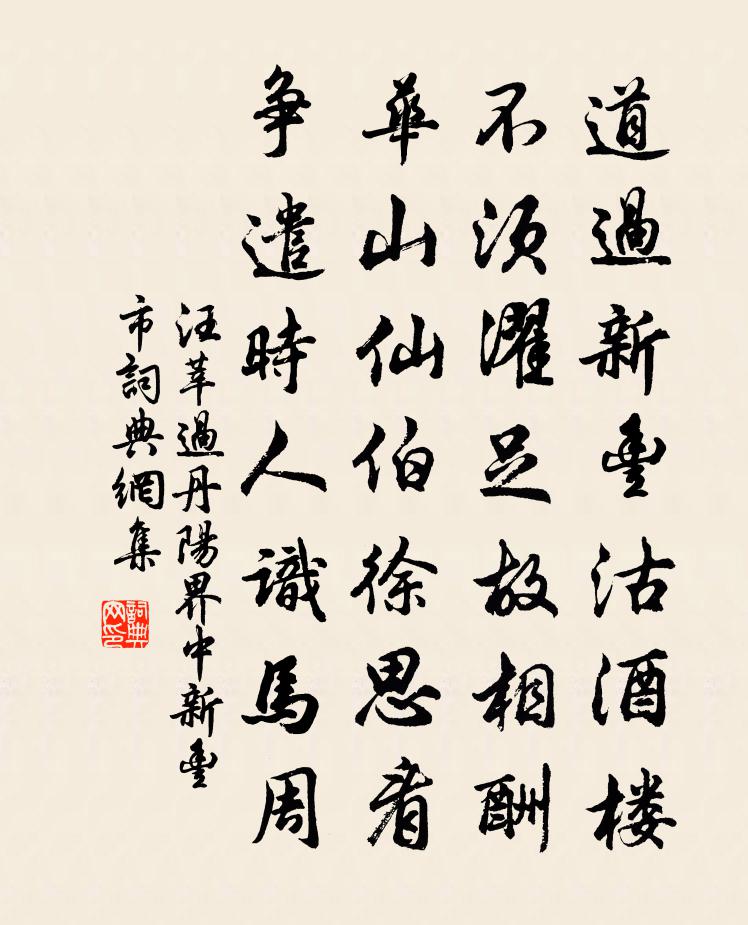 道過新豐沽酒楼
不須濯足故相酬
華山仙伯徐思看
争遣時人識馬周
汪莘過丹陽界中新豐
市詞典網集
詞典网印